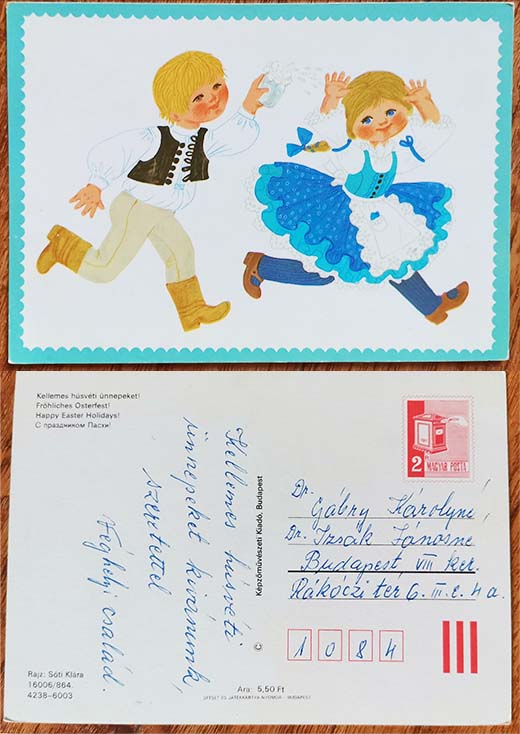 Kellemes húsvéti ünnepeket!
Fröhliches Osterfest!
Happy Easter Holidays!
С праздником Пасхи!
Kellemes húsvéti
ünnepeket kívánunk,
szeretettel
Véghelyi család.
Képzőművészeti Kiadó, Budapest
©
2
Ft
MAGYAR POSTA
Dr. Gábry Károlyné,
Dr. Izsák Jánosné
Budapest, VIII ker.
Rákóczi tér 6. III. e. 4 a.
1084
Rajz: Sóti Klára
16006/864.
4238-6003
Ára: 5,50 Ft
OFFSET ÉS JÁTÉKKÁRTYA NYOMDA - BUDAPEST